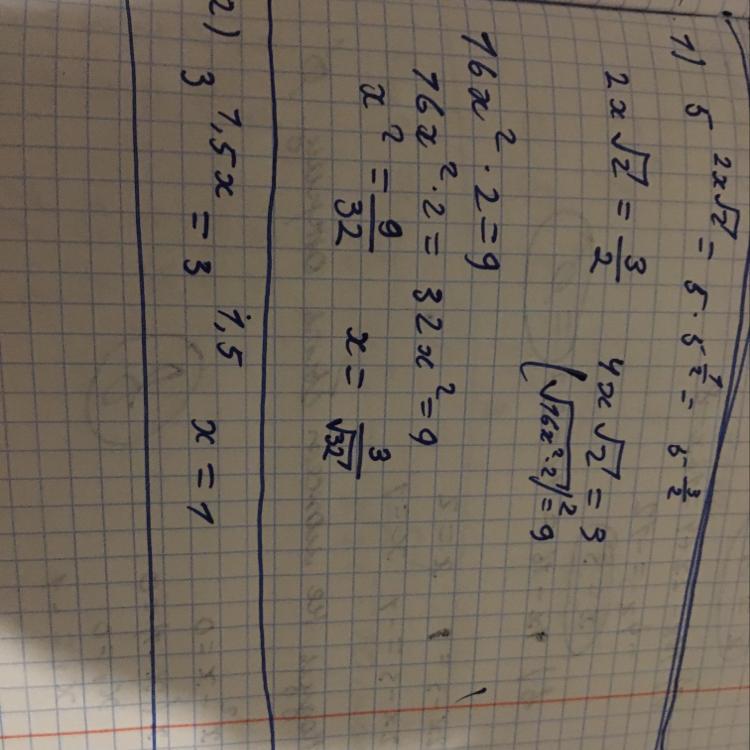 1) 5^{2x√2} = 5 · 5^{1/2} = 5^{3/2}
2x√2 = 3/2    4x√2 = 3
(√16x²·2)² = 9
16x² · 2 = 9
16x² · 2 = 32x² = 9
x² = 9/32    x = 3/√32
2) 3^{1,5x} = 3^{1,5}    x = 1